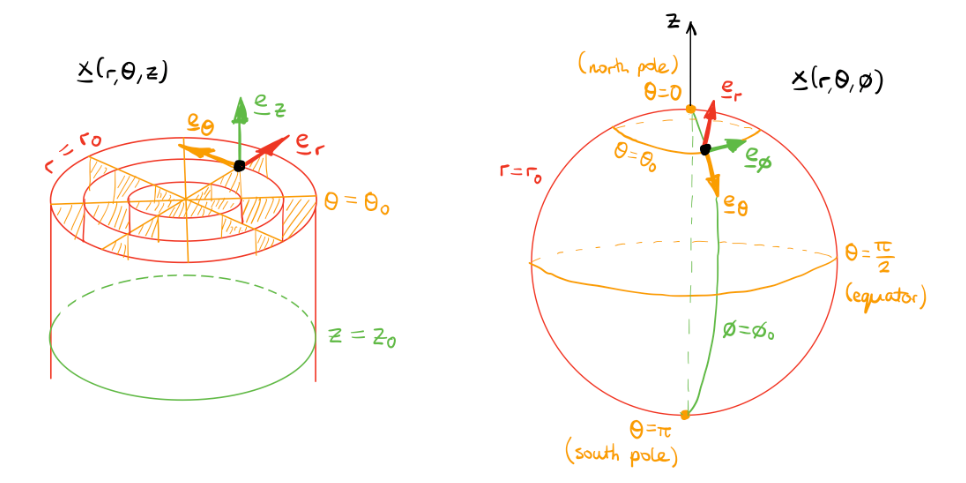 x(r,θ,z)
e_z
e_θ
e_r
r=r₀
θ=θ₀
z=z₀
z
(north pole)
θ=0
x(r,θ,ϕ)
e_r
e_ϕ
θ=θ₀
r=r₀
e_θ
θ=π/2
(equator)
ϕ=ϕ₀
θ=π
(south pole)